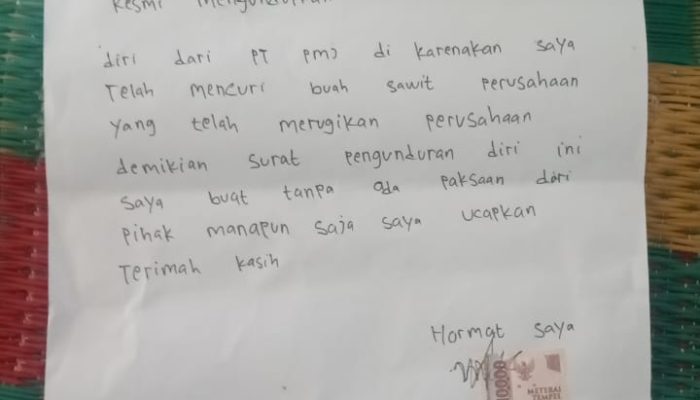 Resmi mengundurkan
diri dari PT PMJ di karenakan saya
Telah mencuri buah sawit perusahaan
yang telah merugikan perusahaan
demikian surat pengunduran diri ini
saya buat tanpa ada paksaan dari
pihak manapun saja saya ucapkan
Terimah kasih
Hormat saya
10000
METERAI
TEMPEL